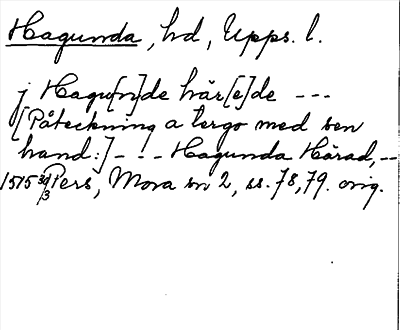 Hagunda, hd, Upps. l.
j Hagu[n]de här[e]de ---
[Påteckning a tergo med sen
hand:] --- Hagunda Härad, --
1515 30/3 Pers, Mora sn 2, ss. 78, 79. orig.